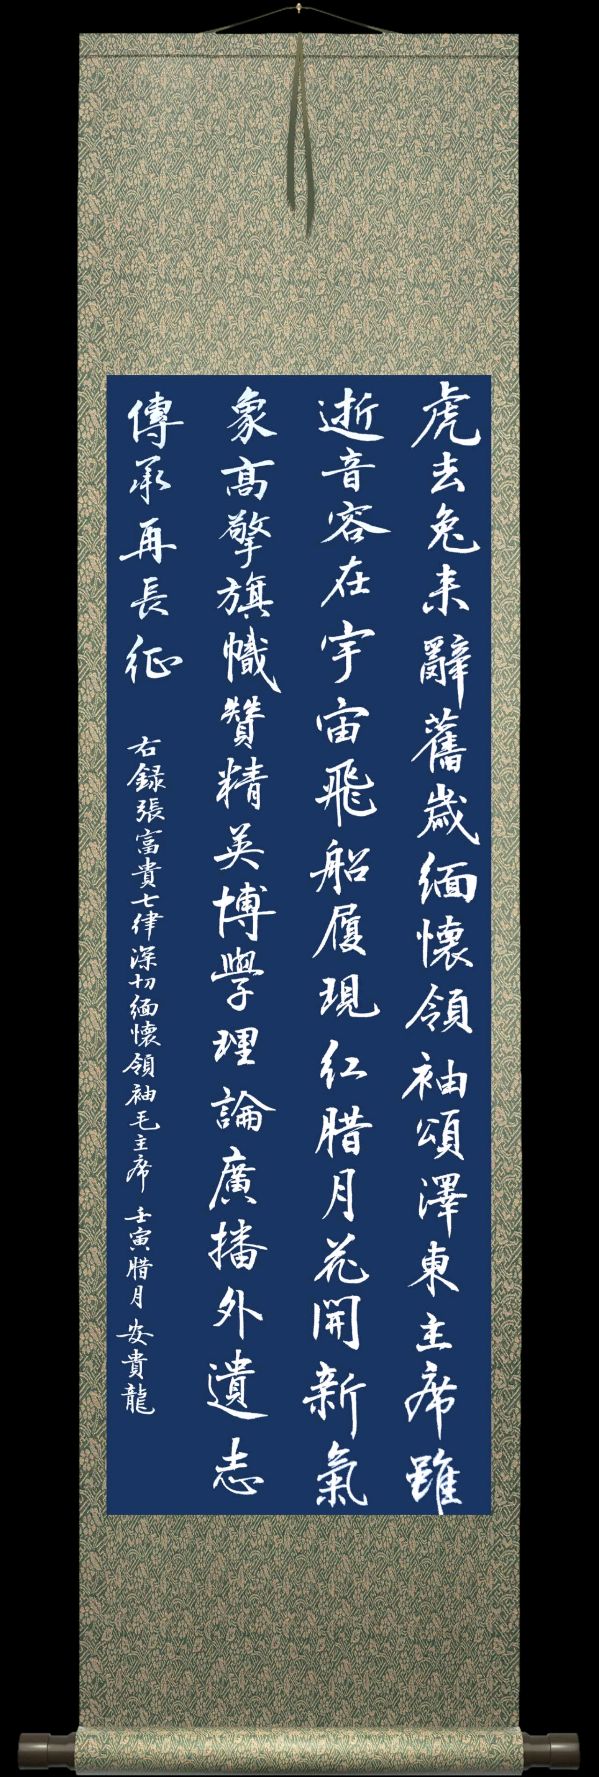 虎去兔来辭舊歲緬懷領袖頌澤東主席雖
逝音容在宇宙飛船履現紅腊月花開新氣
象高擎旗幟贊精英博學理論廣播外遺志
傳承再長征
右録張富貴七律深切緬懷領袖毛主席 壬寅腊月 安貴龍